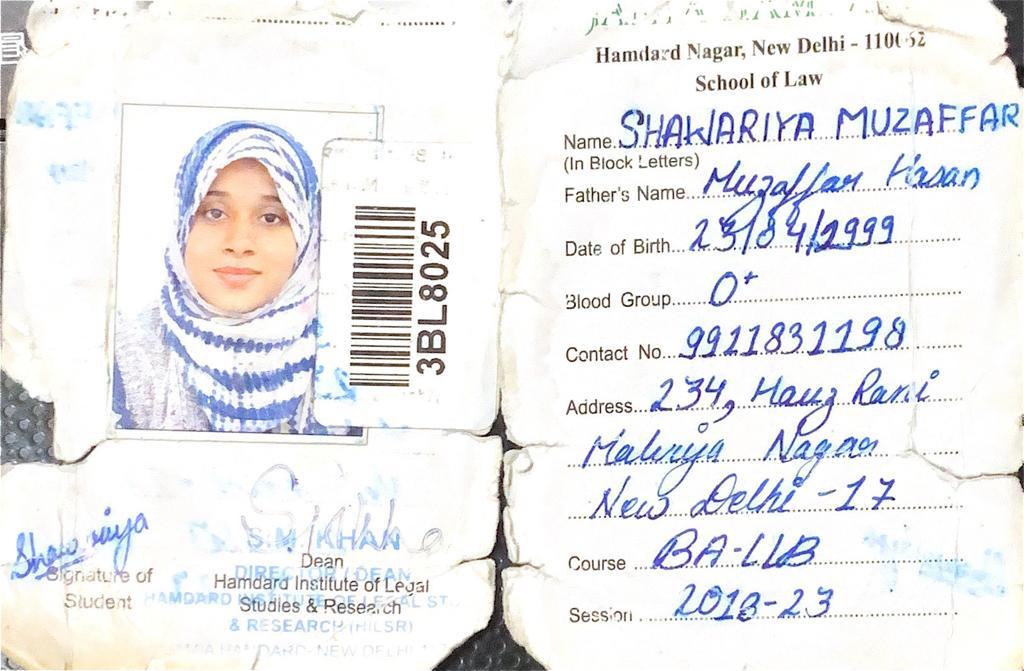 3BL8025
Shawariya
Signature of
Student
S.M. KHAN
Dean
DIRECTOR / DEAN
Hamdard Institute of Legal
HAMDARD INSTITUTE OF LEGAL ST
Studies & Research
& RESEARCH (HILSR)
HAMDARD NEW DELHI
Hamdard Nagar, New Delhi - 110062
School of Law
Name. SHAWARIYA MUZAFFAR
(In Block Letters)
Father's Name Muzaffar Hasan
Date of Birth 23/04/1999
Blood Group O+
Contact No. 9911831198
Address 234, Hauz Rani
Malviya Nagar
New Delhi - 17
Course BA-LLB
Session 2018-23